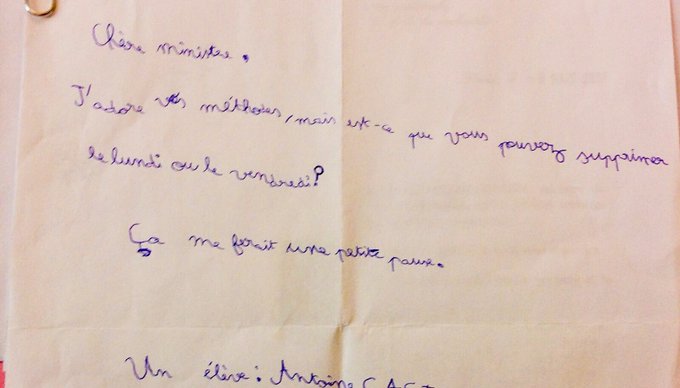 Chère ministre.
J'adore vos méthodes, mais est-ce que vous pouvez supprimer
le lundi ou le vendredi?
Ça me ferait une petite pause.
Un élève: Antoine